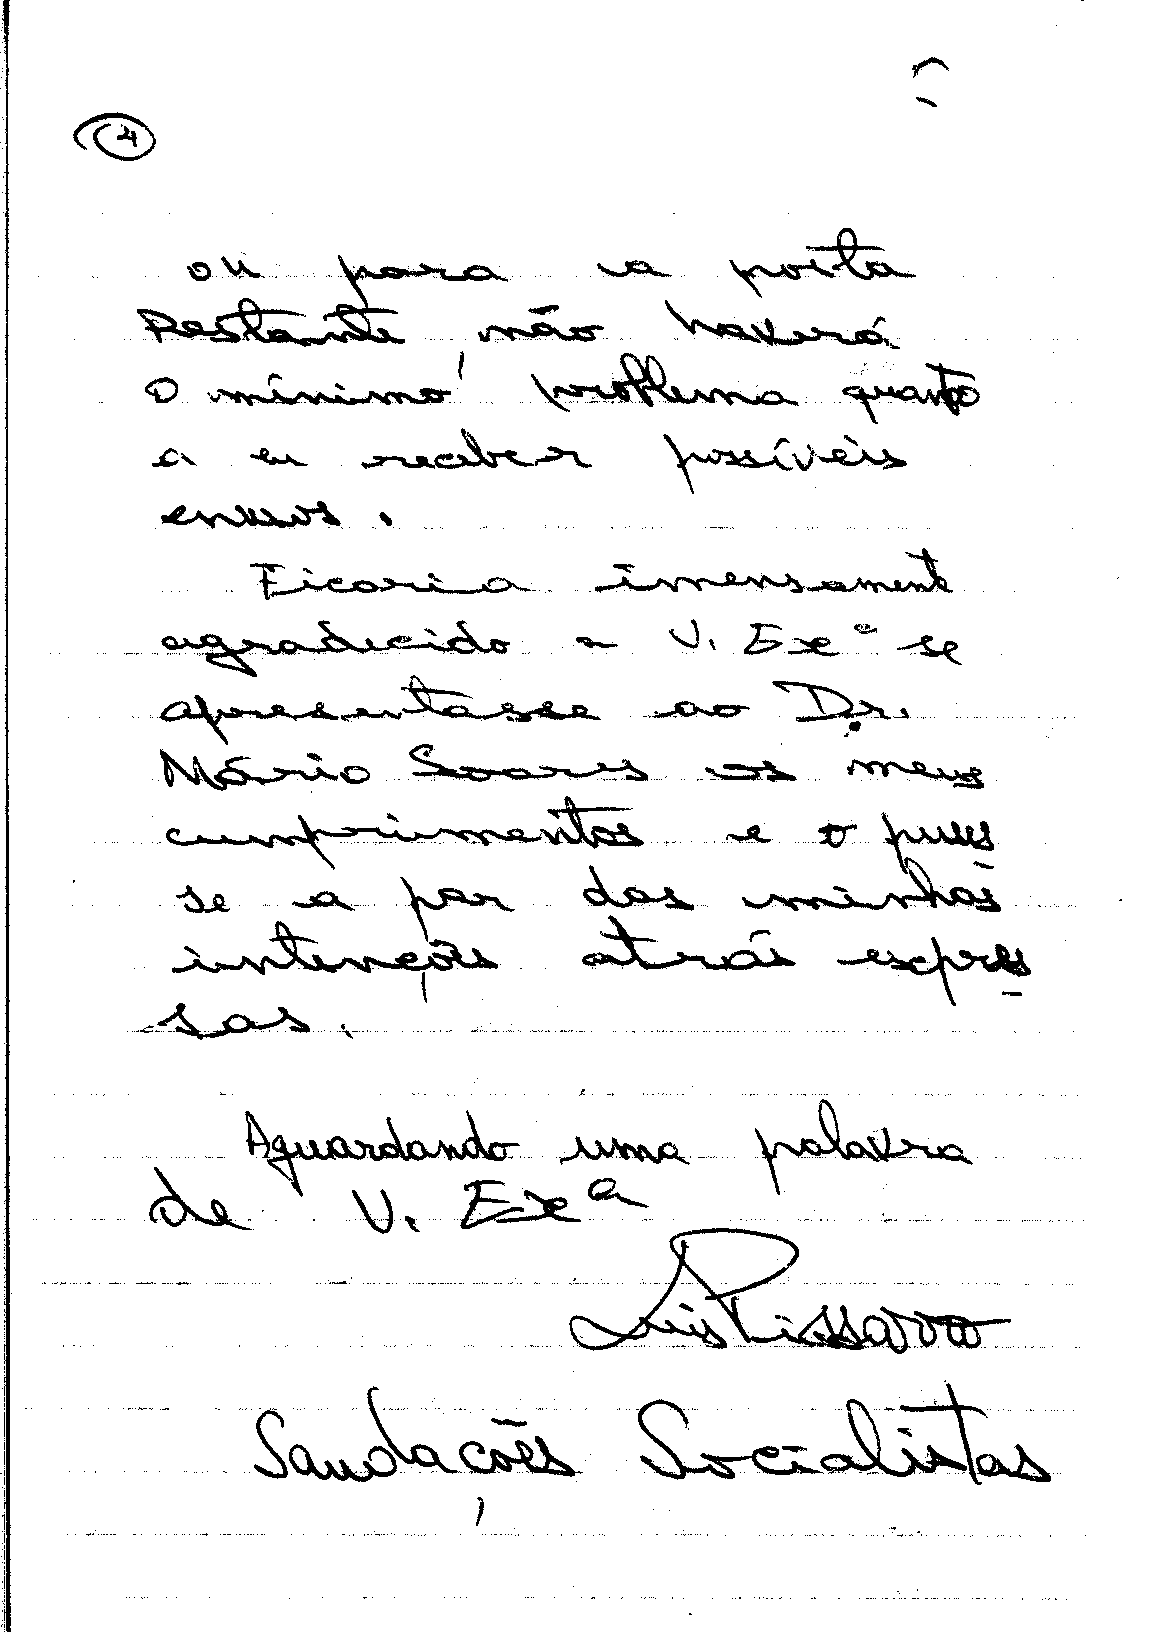 4
ou para a posta
Restante, não haverá
o mínimo problema quanto
a eu receber possíveis
envios.
Ficaria imensamente
agradecido a V. Exª se
apresentasse ao Dr.
Mário Soares os meus
cumprimentos e o puses
se a par das minhas
intenções atrás expres
sas.
Aguardando uma palavra
de V. Exª
Luis Pissarro
Saudações Socialistas